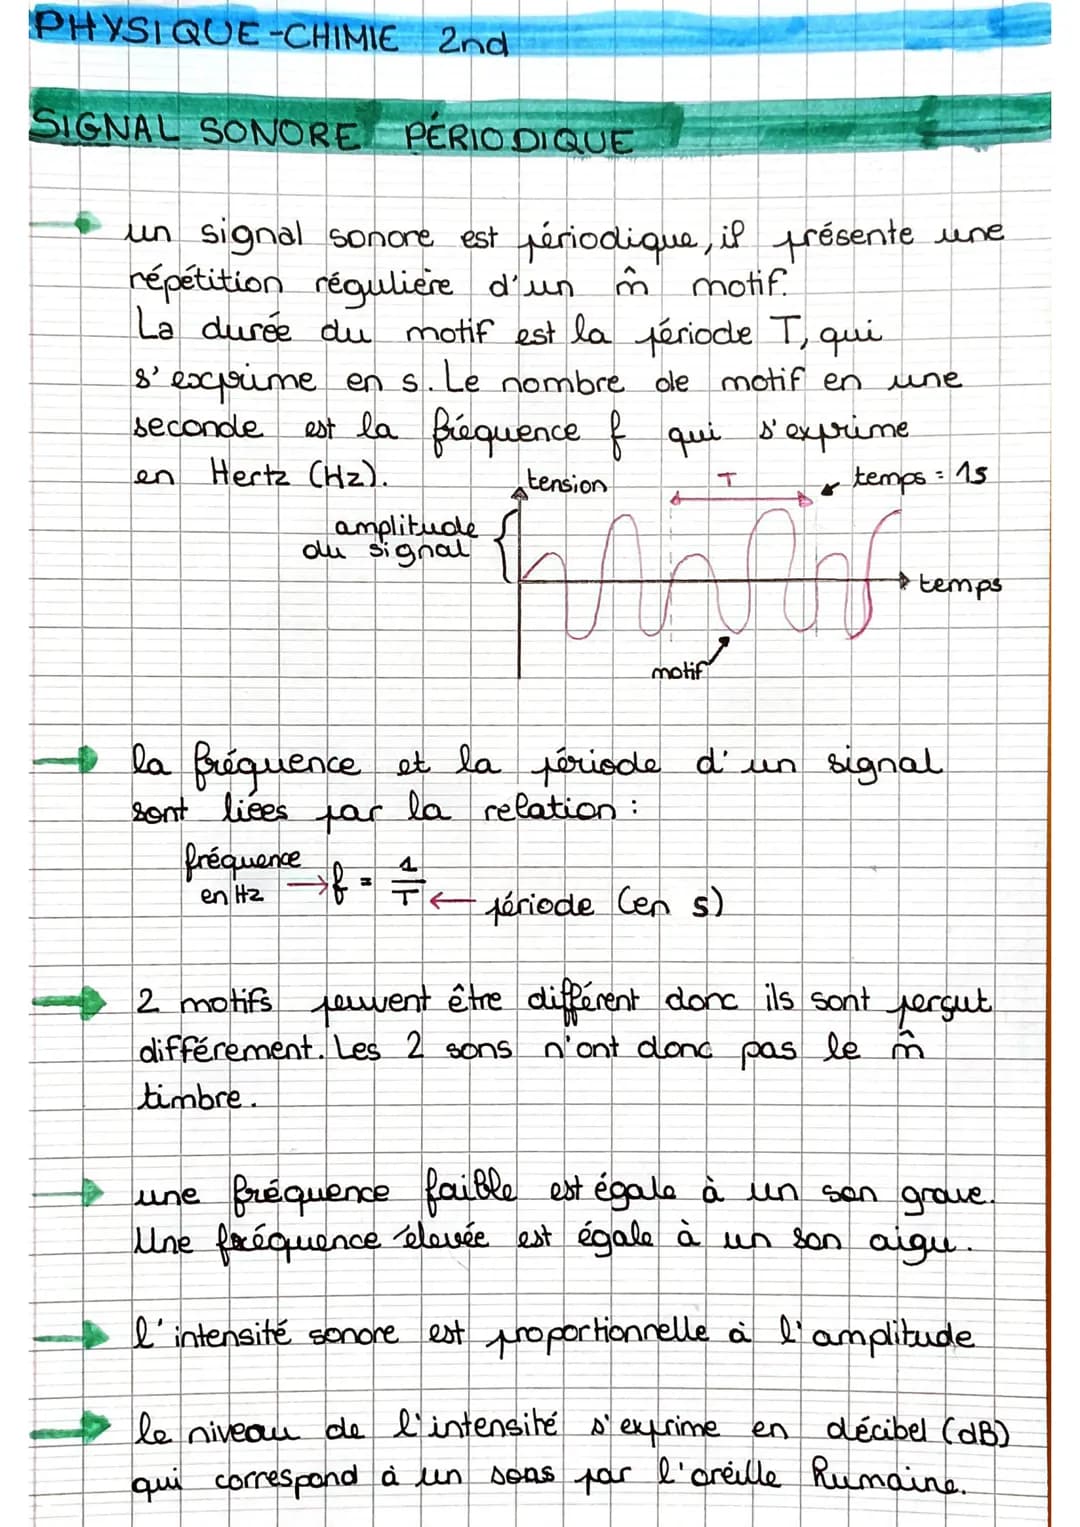 PHYSIQUE-CHIMIE 2nd
SIGNAL SONORE PÉRIODIQUE
un signal sonore est périodique, il présente une
répétition régulière d'un m̂ motif.
La durée du motif est la période T, qui
s'exprime en s. Le nombre de motif en une
seconde est la fréquence f qui s'exprime
en Hertz (Hz).
tension
T
temps = 1s
amplitude
du signal
temps
motif
la fréquence et la période d'un signal
sont liées par la relation :
fréquence
en Hz → f = 1/T ← période (en s)
2 motifs peuvent être différent donc ils sont perçut
différement. Les 2 sons n'ont donc pas le m̂
timbre.
une fréquence faible est égale à un son grave.
Une fréquence élevée est égale à un son aigu.
l'intensité sonore est proportionnelle à l'amplitude
le niveau de l'intensité s'exprime en décibel (dB)
qui correspond à un sons par l'oreille humaine.